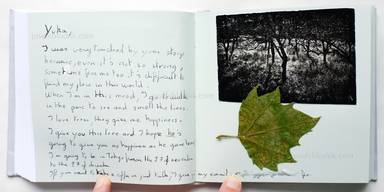 Yuka,
I was very touched by your story
because, even it's not so strong,
sometimes for me too it's difficult to
find my place in this world.
When I'm in this mood, I go to walk
in the parc to see and smell the trees.
I love trees they give me happiness.
I give you this tree and I hope he's
going to give you my happiness as he gave to me.
I'm going to be in Tokyo from the 27 of november
to the
If you need to take a coffee or just talk, I give you my email